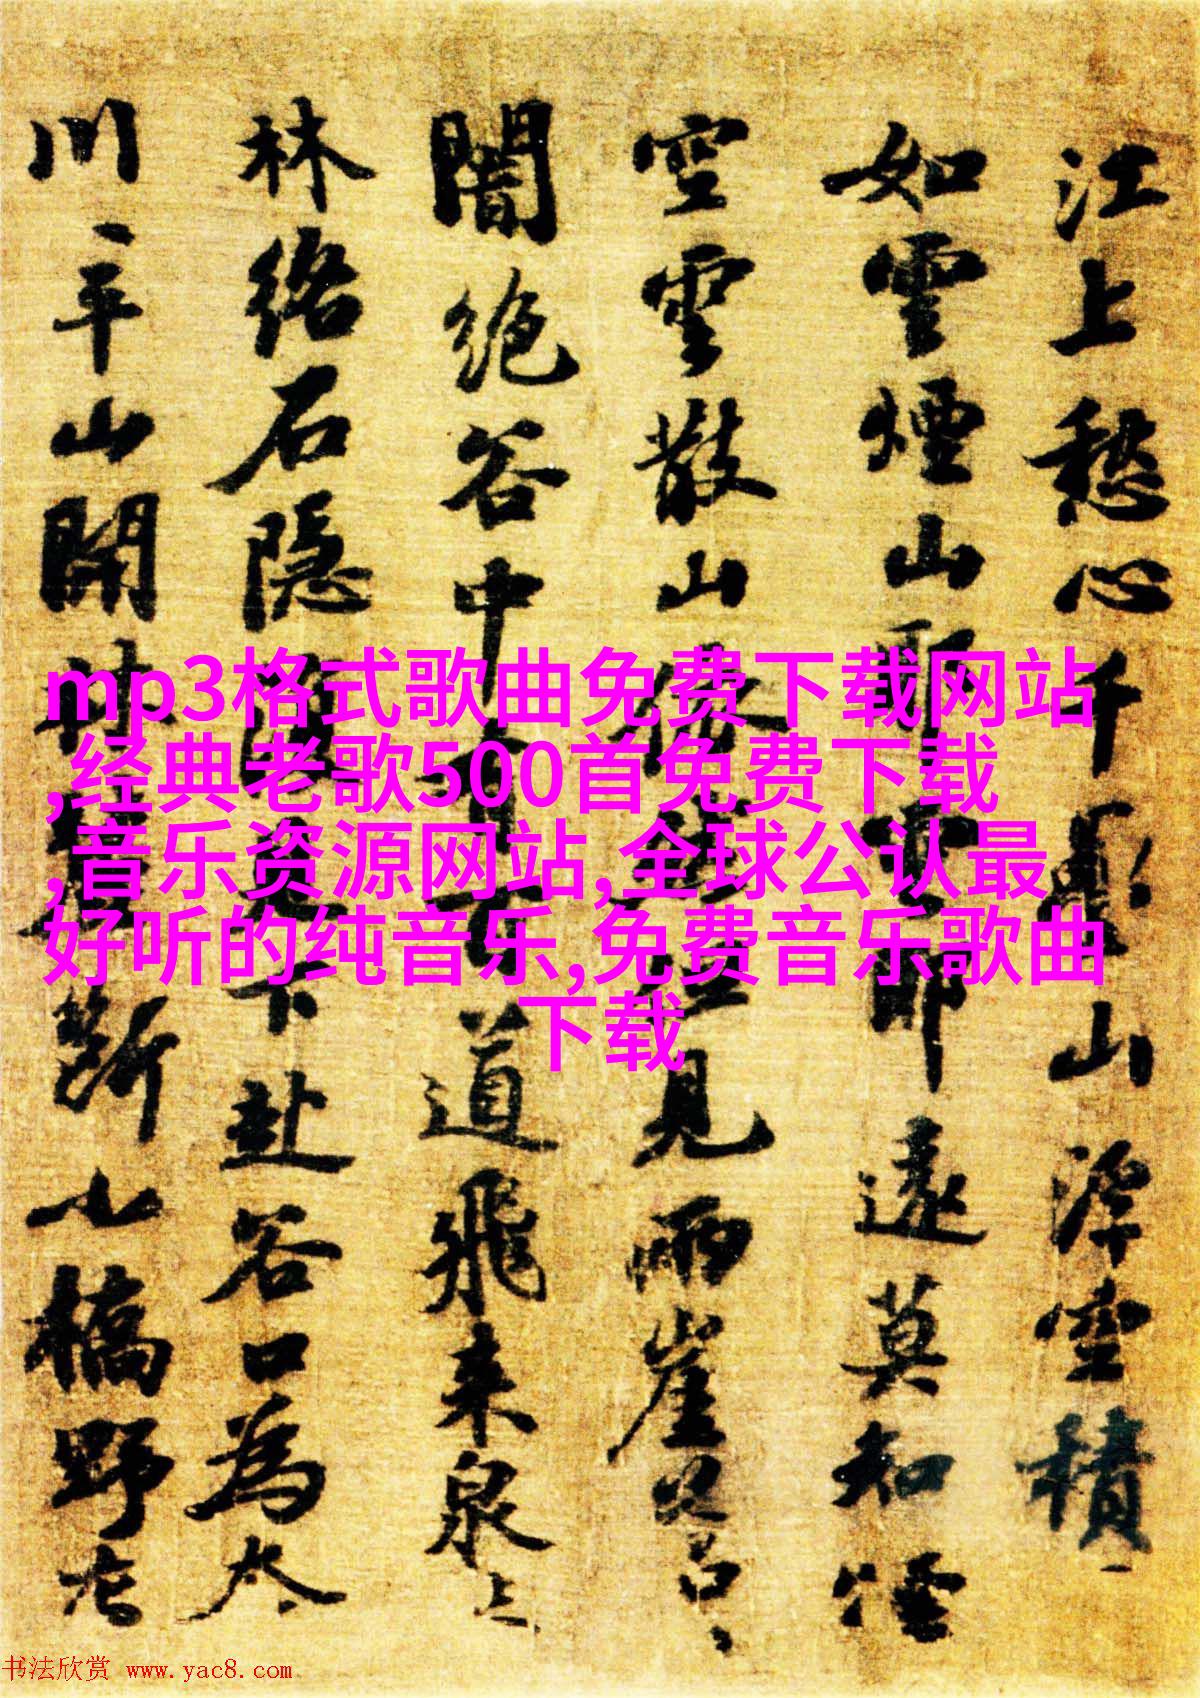 江上愁心千疊山浮空積
如雲煙山耶雲耶遠莫知煙
空雲散山依然但見兩崖蒼
闇絕谷中有百道飛來泉
林絡石隱復見下赴谷口為
川平山開林麓斷小橋野店
mp3格式歌曲免费下载网站
,经典老歌500首免费下载
,音乐资源网站,全球公认最
好听的纯音乐,免费音乐歌曲
下载
书法欣赏 www.yac8.com